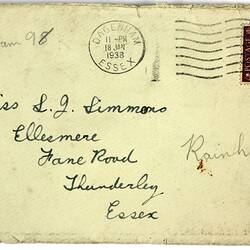 98
DAGENHAM
11-PM
18 JAN
1938
ESSEX
iss S. J. Simmons
Ellesmere
Fane Road
Thundersley
Essex
Rainh